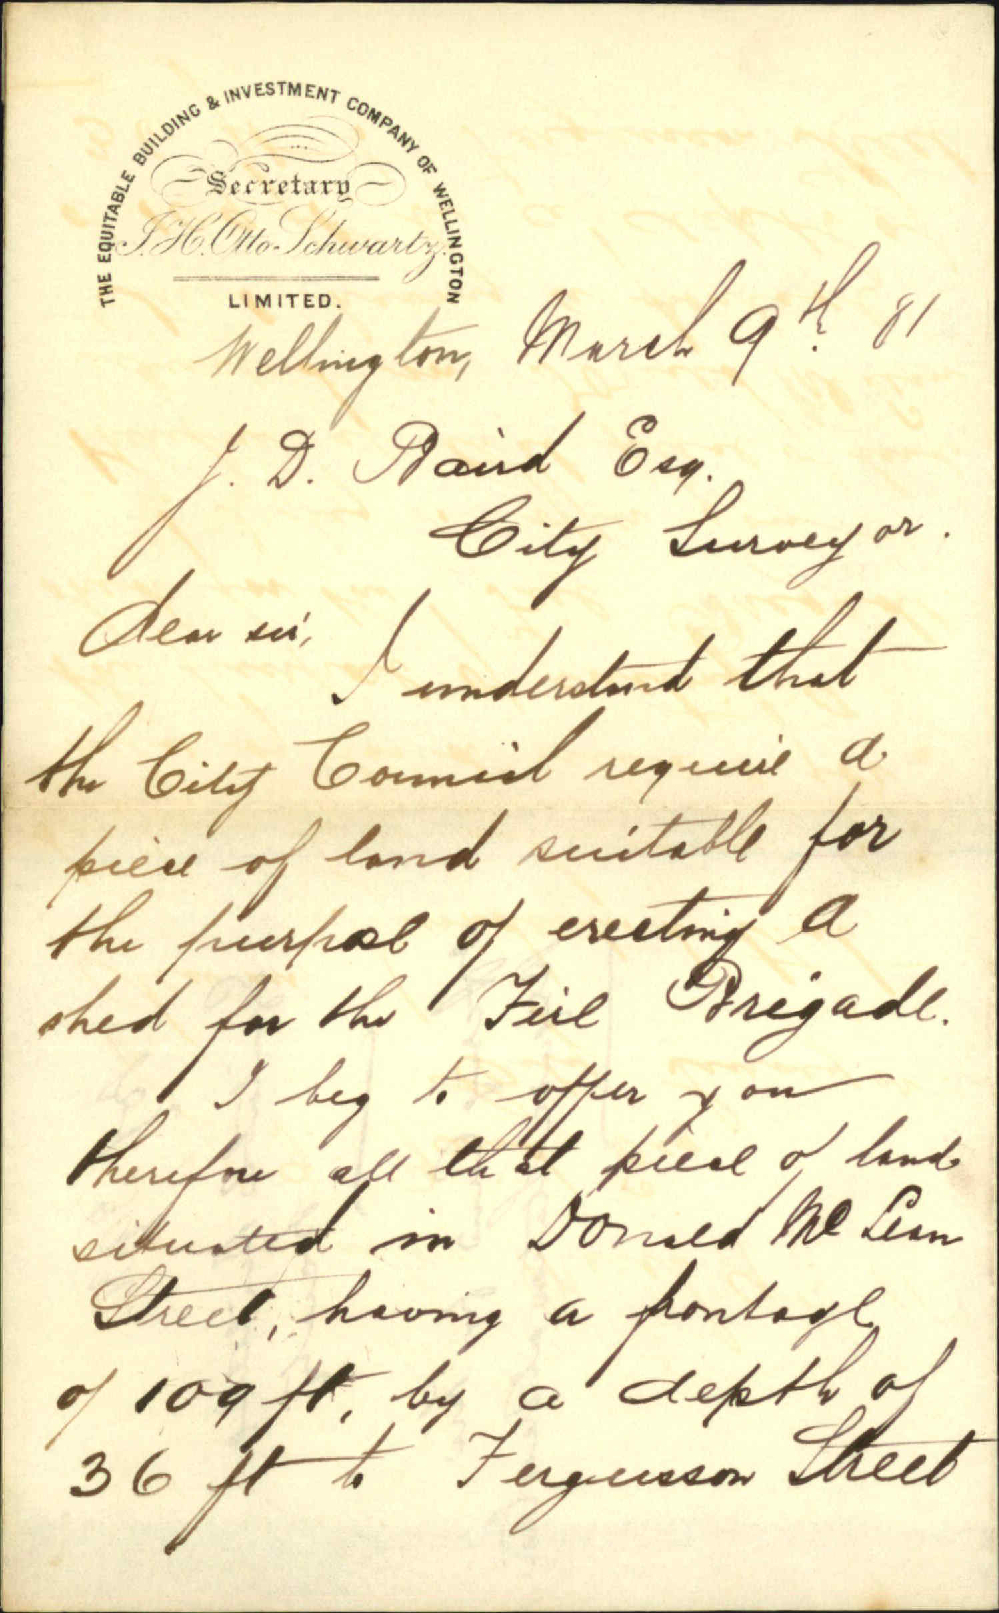 THE EQUITABLE BUILDING & INVESTMENT COMPANY OF WELLINGTON
Secretary
J. H. Otto Schwartz.
LIMITED.
Wellington, March 9th. 81
J. D. Baird Esq.
City Surveyor.
Dear sir,
I understand that
the City Council require a
piece of land suitable for
the purpose of erecting a
shed for the Fire Brigade.
I beg to offer you
therefore all that piece of land
situated in Donald McLean
Street, having a frontage
of 109 ft, by a depth of
36 ft to Fergusson Street